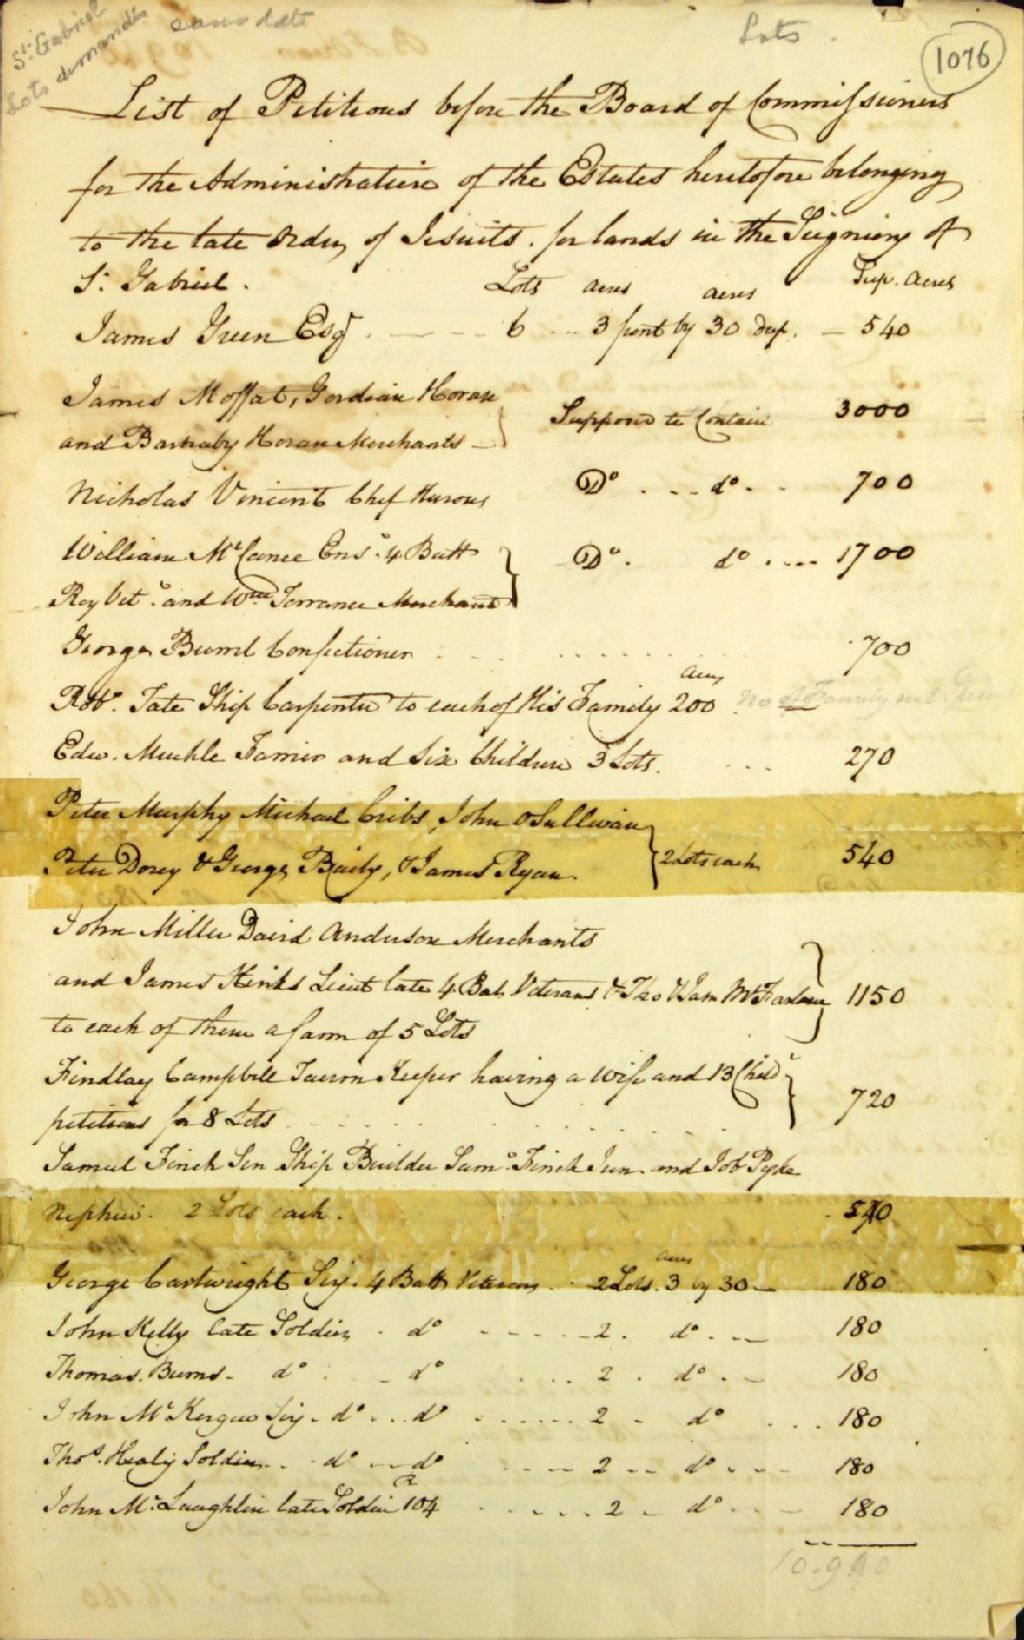 St. Gabriel
Lots demandés
sans date
Lots.
1076
List of Petitions before the Board of Commissioners
for the Administration of the Estates heretofore belonging
to the late Order of Jesuits. for lands in the Seigniory of
St. Gabriel. Lots acres acres Sup. acres
James Green Esqr. 6 3 front by 30 deep. 540
James Moffat, Gordian Horan
and Barnaby Horan Merchants Supposed to Contain 3000
Nicholas Vincent Chef Hurons Do. do. 700
William McCance Ens. 4 Batt
Roy Vet. and Wm Torrance Merchant Do. do. 1700
George Confectioner 700
acres
Robt. Tate Ship Carpenter to each of His Family 200 no of Family not
Edw. Meukle Farrier and Six Children 3 Lots. 270
Peter Murphy Michael Cribs, John OSullivan
Peter Dorey & George Baily, & James Ryan. 2 Lots each 540
John Miller David Anderson Merchants
and James Hinks Lieut late 4 Bat Veterans & Tho & Jam McFarlane 1150
to each of them a farm of 5 Lots
Findlay Campbell Tavern Keeper having a Wife and 13 Child
petitions for 8 Lots 720
Samuel Finch Sen Ship Builder Sam. Finch Jun. and Job Pyke
Nephew. 2 Lots each. 540
acres
George Cartwright Serj. 4 Batt Veterans. 2 Lots. 3 by 30 180
John Kelly late Soldier. do 2. do. 180
Thomas. Burns. do do 2. do. 180
John McKergow Serj. do. do 2 do 180
Thos. Healy Soldier. do do 2 do 180
John McLaughlin late Soldier 104 R 2 do 180
10.990